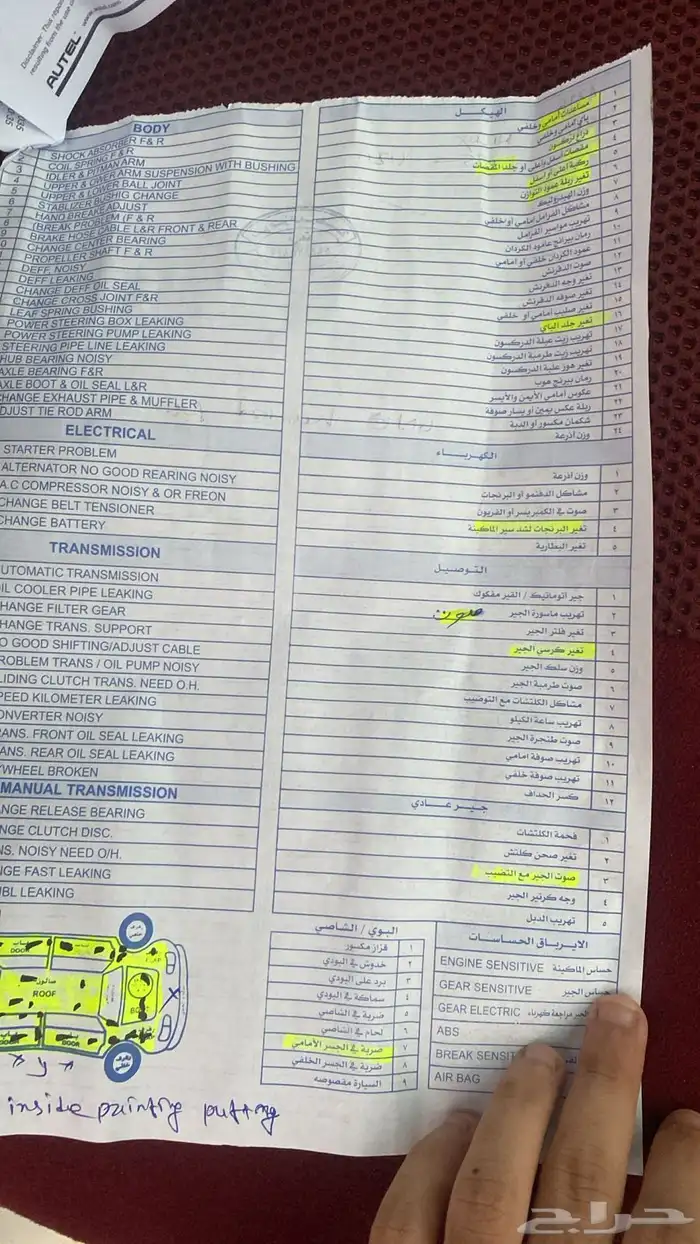 Disclaimer: This repor
resulting from the use o
AUTEL
www.autel.com
BODY
SHOCK ABSORBER F & R
COIL SPRING F & R
IDLER & PITMAN ARM
UPPER & LOWER ARM SUSPENSION WITH BUSHING
UPPER & LOWER BALL JOINT
STABLIZER BUSHIG CHANGE
HAND BREAK ADJUST
(BREAK PROBLEM (F & R
BRAKE HOSE CABLE L&R FRONT & REAR
CHANGE CENTER BEARING
PROPELLER SHAFT F & R
DEFF. NOISY
DEFF LEAKING
CHANGE DEFF OIL SEAL
CHANGE CROSS JOINT F&R
LEAF SPRING BUSHING
POWER STEERING BOX LEAKING
POWER STEERING PUMP LEAKING
STEERING PIPE LINE LEAKING
HUB BEARING NOISY
AXLE BEARING F&R
AXLE BOOT & OIL SEAL L&R
HANGE EXHAUST PIPE & MUFFLER
DJUST TIE ROD ARM
ELECTRICAL
STARTER PROBLEM
ALTERNATOR NO GOOD REARING NOISY
A.C COMPRESSOR NOISY & OR FREON
CHANGE BELT TENSIONER
CHANGE BATTERY
TRANSMISSION
UTOMATIC TRANSMISSION
IL COOLER PIPE LEAKING
HANGE FILTER GEAR
HANGE TRANS. SUPPORT
O GOOD SHIFTING/ADJUST CABLE
ROBLEM TRANS / OIL PUMP NOISY
LIDING CLUTCH TRANS. NEED O.H.
PEED KILOMETER LEAKING
ONVERTER NOISY
ANS. FRONT OIL SEAL LEAKING
ANS. REAR OIL SEAL LEAKING
YWHEEL BROKEN
MANUAL TRANSMISSION
ANGE RELEASE BEARING
NGE CLUTCH DISC.
NS. NOISY NEED O/H.
NGE FAST LEAKING
UBL LEAKING
الهيكل
١ مساعدات امامي وخلفي
٢ ياي امامي وخلفي
٤ مقصات اسفل واعلى او جلد المقصات
٥ ركبة اعلى او اسفل
تغير ربلة عمود التوازن
٧ وزن الهيدروليك
٨ مشاكل الفرامل امامي أو خلفي
٩ تهريب مواسير الفرامل
١٠ رمان بيرنج عامود الكردان
١١ عمود الكردان خلفي او امامي
١٢ صوت الدفرنش
١٣ تغير وجه الدفرنش
١٤ تغير صوفه الدفرنش
١٥ تغير صليب امامي أو خلفي
١٦ تغير جلد الياي
١٧ تهريب زيت عيلة الدركسون
١٨ تهريب زيت طرمبة الدركسون
١٩ تغير هوز علبة الدركسون
٢٠ رمان بيرنج هوب
٢١ عكوس امامي الأيمن والأيسر
٢٢ ربلة عكس يمين أو يسار صوفة
٢٣ شكمان مكسور أو الدبة
٢٤ وزن أذرعة
الكهرباء
١ وزن أذرعة
٢ مشاكل الدهنمو أو البرنجات
٣ صوت في الكمبريسر أو الفريون
٤ تغير البرنجات لشد سير الماكينة
٥ تغير البطارية
التوصيل
١ جير أتوماتيك / القير مفكوك
٢ تهريب ماسورة الجير صوت
٣ تغير فلتر الجير
٤ تغير كرسي الجير
٥ وزن سلك الجير
٦ صوت طرمبة الجير
٧ مشاكل الكلتشات مع التوضيب
٨ تهريب ساعة الكيلو
٩ صوت طنجرة الجير
١٠ تهريب صوفة امامي
١١ تهريب صوفة خلفي
١٢ كسر الحداف
جير عادي
١ فحمة الكلتشات
٢ تغير صحن كلتش
٣ صوت الجير مع التضيب
٤ وجه كرنير الجير
٥ تهريب الدبل
البوي / الشاصي
١ قزاز مكسور
٢ خدوش في البودي
٣ برد على البودي
٤ سماكة في البودي
٥ ضربة في الشاصي
٦ لحام في الشاصي
٧ ضربة في الجسر الأمامي
٨ ضربة في الجسر الخلفي
٩ السيارة مقصوصه
الايرباق الحساسات
ENGINE SENSITIVE حساس الماكينة
GEAR SENSITIVE حساس الجير
GEAR ELECTRIC الجير مراجعة كهرباء
ABS
BREAK SENSIT
AIR BAG
باب
DOOR
باب
صالون
ROOF
DOOR
inside painting putting
حراج